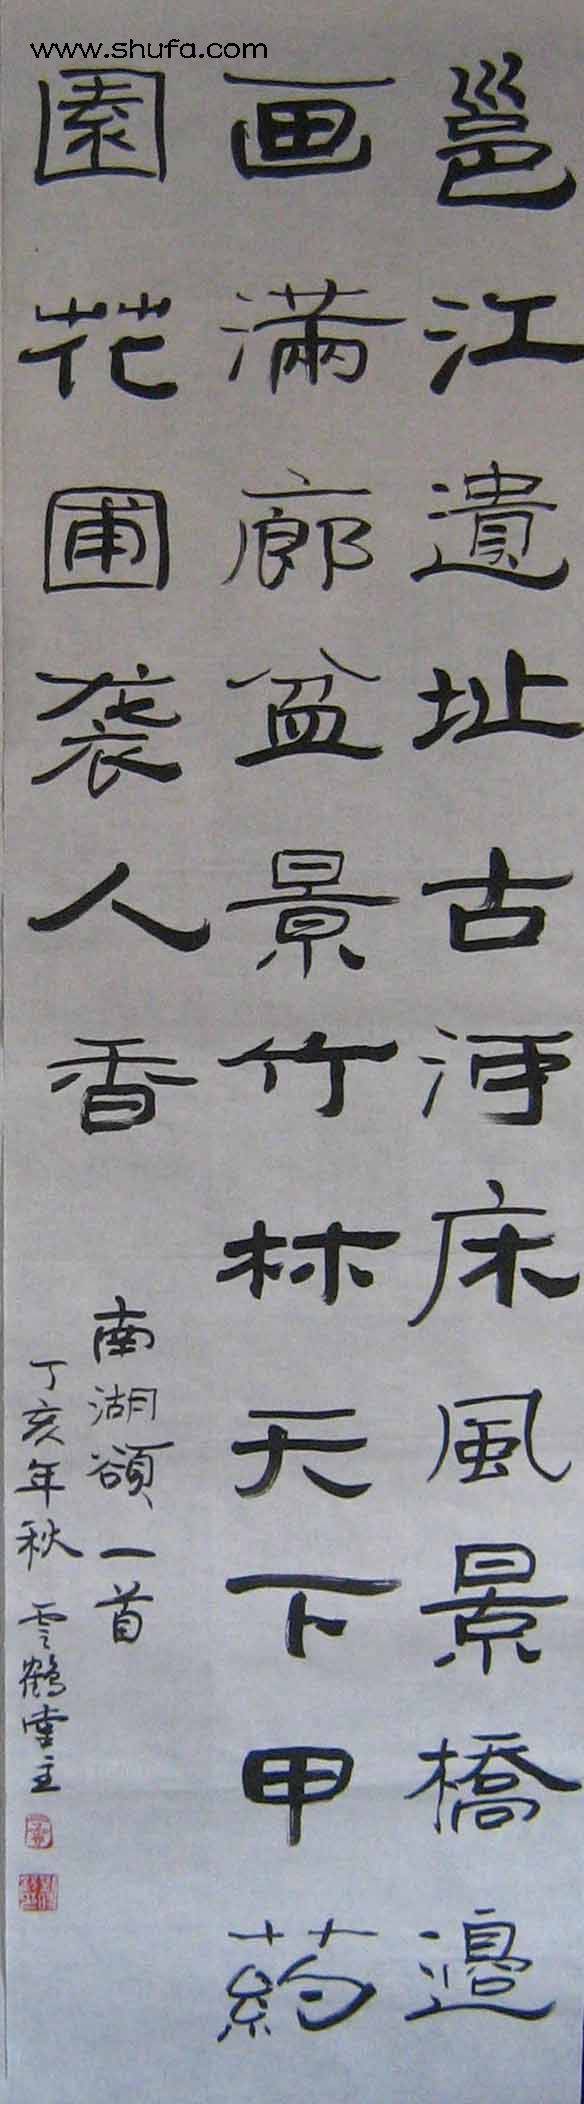 www.shufa.com
邕江遺址古河床風景橋邉
画滿廊盆景竹林天下甲葯
園花圃袭人香
南湖頌一首
丁亥年秋 雲鶴堂主